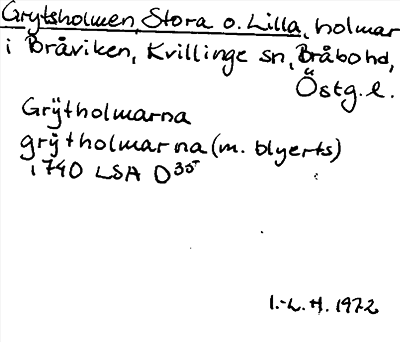 Grytsholmen, Stora o. Lilla, holmar
i Bråviken, Kvillinge sn, Bråbohd,
Östg. l.
Grÿtholmarna
grÿtholmarna (m. blyerts)
1740 LSA D 35
I.-L. H. 1972